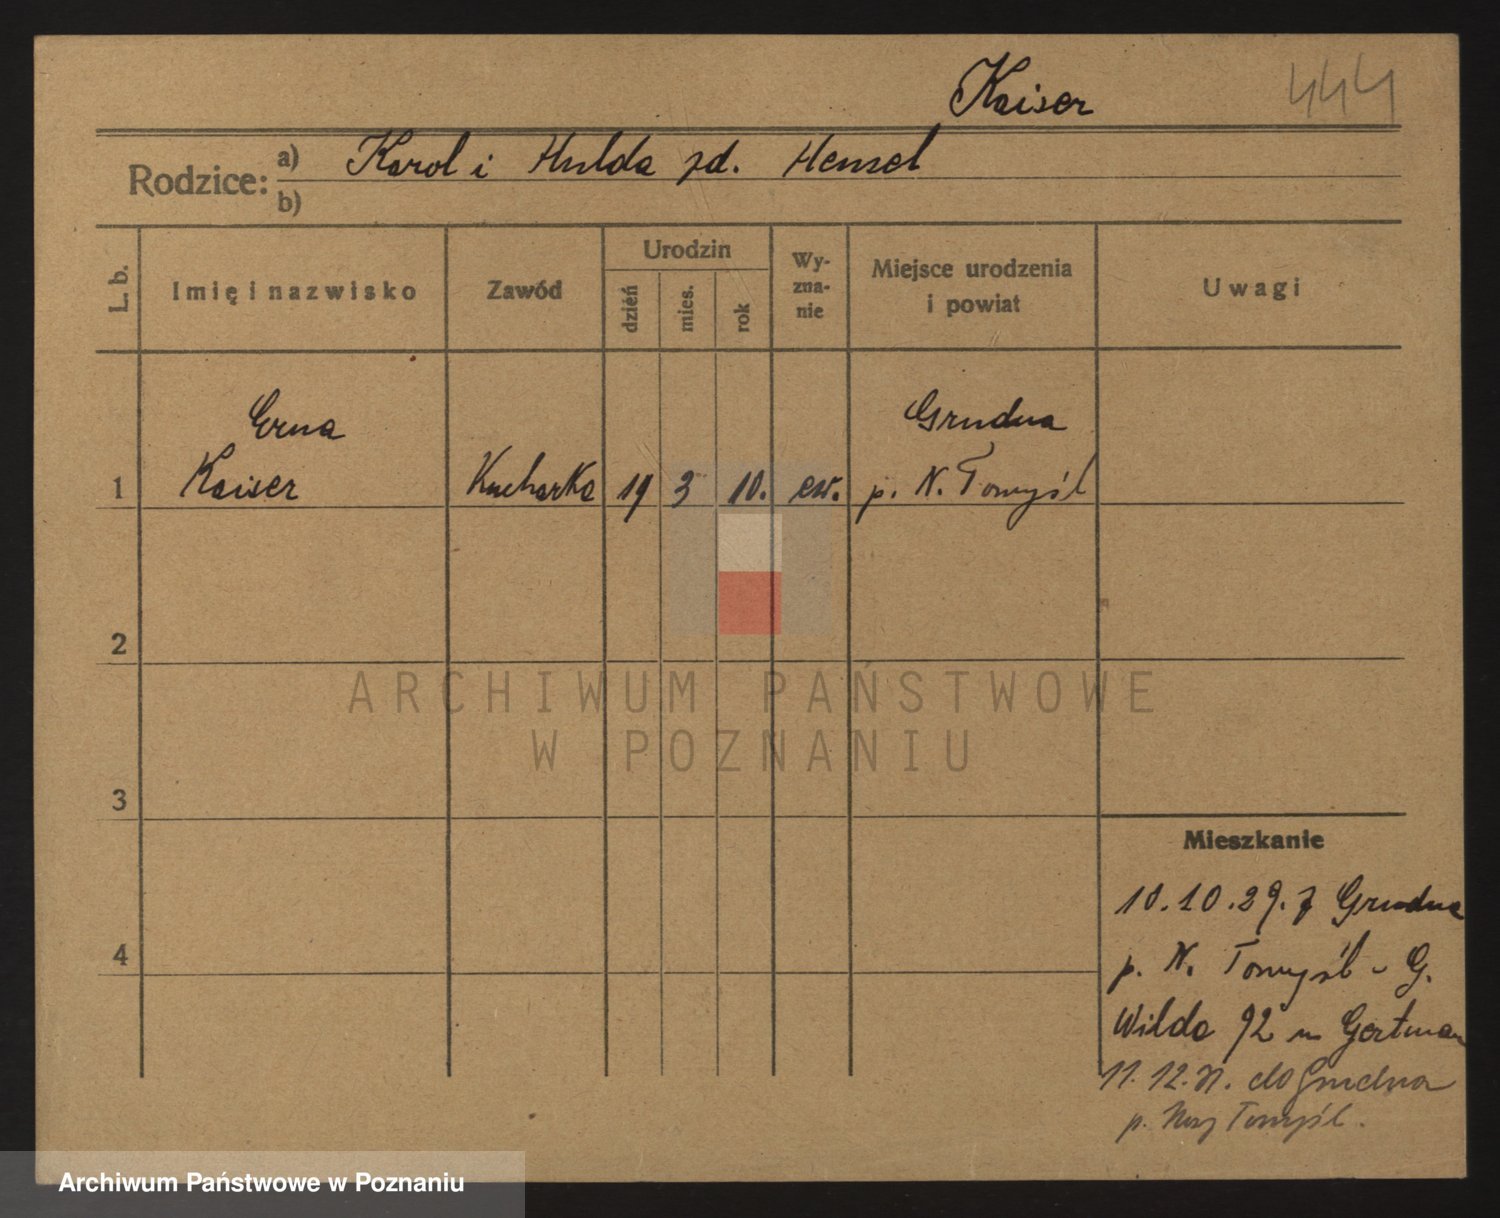 Kaiser 444
Rodzice: a) Karol i Hulda zd. Hensel
b)
L. b. Imię i nazwisko Zawód Urodzin dzień mies. rok Wy-zna-nie Miejsce urodzenia i powiat Uwagi
Erna Grudna
1 Kaiser Kucharka 19 3 10. ew. p. N. Tomyśl
2
ARCHIWUM PAŃSTWOWE
W POZNANIU
3
Mieszkanie
10.10.29. z Grudna
4
p. N. Tomyśl - G.
Wilda 92 u Gertman
11.12. do Grudna
p. Nowy Tomyśl.
Archiwum Państwowe w Poznaniu